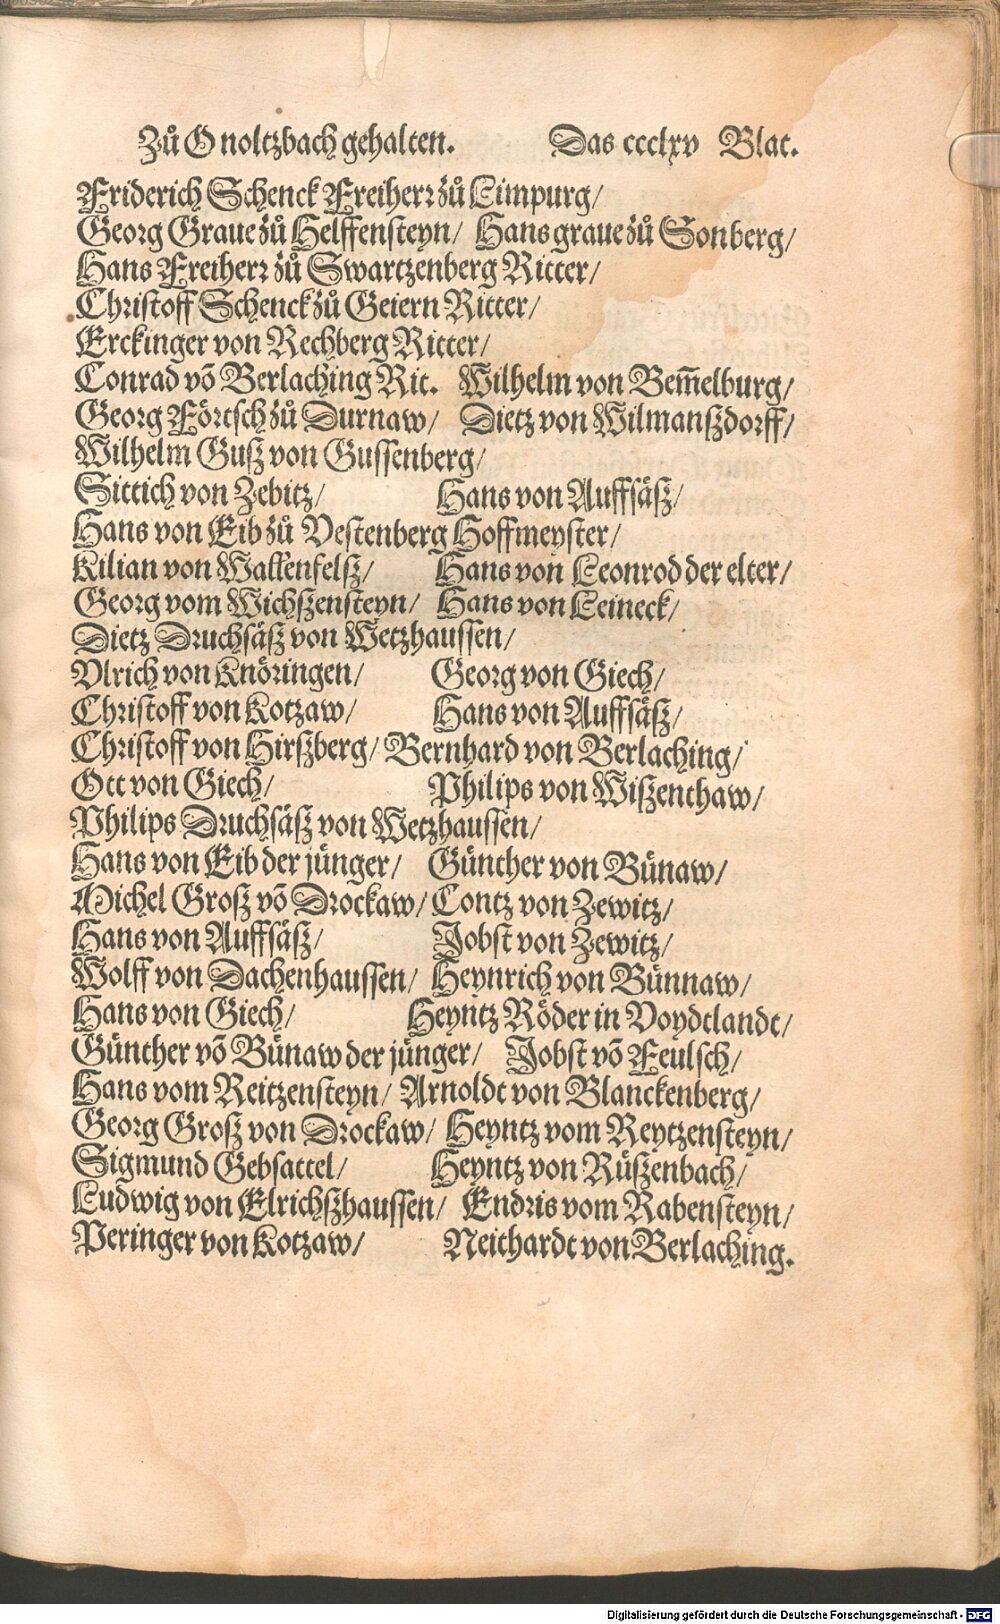 Zů Onoltzbach gehalten. Das ccclxv Blat.
Friderich Schenck Freiherr zů Limpurg/
Georg Graue zů Helffensteyn/ Hans graue zů Sonberg/
Hans Freiherr zů Swartzenberg Ritter/
Christoff Schenck zů Geiern Ritter/
Erckinger von Rechberg Ritter/
Conrad võ Berlaching Rit. Wilhelm von Bem̃elburg/
Georg Förtsch zů Durnaw/ Dietz von Wilmanßdorff/
Wilhelm Guß von Gussenberg/
Sittich von Zebitz/ Hans von Auffsäß/
Hans von Eib zů Vestenberg Hoffmeyster/
Kilian von Wallenfelß/ Hans von Leonrod der elter/
Georg vom Wichßensteyn/ Hans von Leineck/
Dietz Druchsäß von Wetzhaussen/
Vlrich von Knöringen/ Georg von Giech/
Christoff von Kotzaw/ Hans von Auffsäß/
Christoff von Hirßberg/ Bernhard von Berlaching/
Ott von Giech/ Philips von Wißenthaw/
Philips Druchsäß von Wetzhaussen/
Hans von Eib der jünger/ Günther von Bünaw/
Michel Groß võ Drockaw/ Contz von Zewitz/
Hans von Auffsäß/ Jobst von Zewitz/
Wolff von Dachenhaussen/ Heynrich von Bünnaw/
Hans von Giech/ Heyntz Röder in Voydtlandt/
Günther võ Bünaw der jünger/ Jobst võ Feulsch/
Hans vom Reitzensteyn/ Arnoldt von Blanckenberg/
Georg Groß von Drockaw/ Heyntz vom Reytzensteyn/
Sigmund Gebsattel/ Heyntz von Rüßenbach/
Ludwig von Elrichßhaussen/ Endris vom Rabensteyn/
Peringer von Kotzaw/ Neithardt von Berlaching.
Digitalisierung gefördert durch die Deutsche Forschungsgemeinschaft - DFG